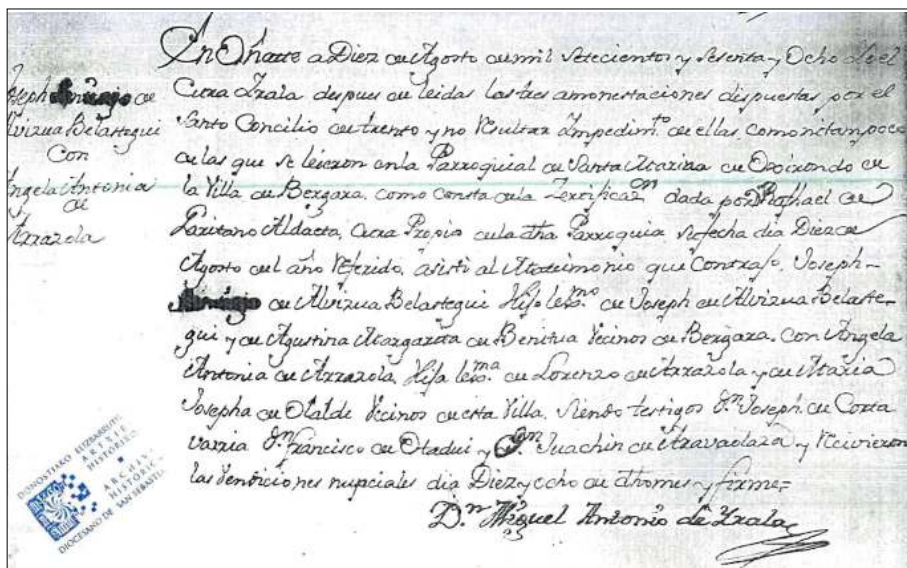 En Oñate a Diez de Agosto de mil setecientos y sesenta y Ocho Yo el
Cura Yrala despues de leidas las tres amonestaciones dispuestas por el
Santo Concilio de trento y no resultar Impedim.to de ellas, como ni tampoco
de las que se leieron en la Parroquial de Santa Marina de Oxirondo de
la Villa de Bergara, como consta de la Zertificaz.on dada por Raphael de
Laritano Aldaeta, Cura Propio de la dha Parroquia su fecha dia Diez de
Agosto del año referido, asisti al Matrimonio que Contrajo, Joseph
de Alvizua Belastegui Hijo lex.mo de Joseph de Alvizua Belaste-
gui y de Agustina Margarita de Benitua Vecinos de Bergara, con Angela
Antonia de Arrazola, Hija lex.ma de Lorenzo de Arrazola y de Maria
Josepha de Olalde Vecinos de esta Villa, siendo testigos D.n Joseph de Corta
varria D.n Francisco de Otadui y D.n Juachin de Aravaolaza y recivieron
las vendiciones nupciales dia Diez y ocho de dho mes y firme=
D.n Miguel Antonio de Yrala
Joseph de
Alvizua Belastegui
Con
Angela Antonia
de
Arrazola
DONOSTIAKO ELIZBARRUTIKO
ARTXIBO
HISTORIKOA
ARCHIVO
HISTÓRICO
DIOCESANO DE SAN SEBASTIÁN